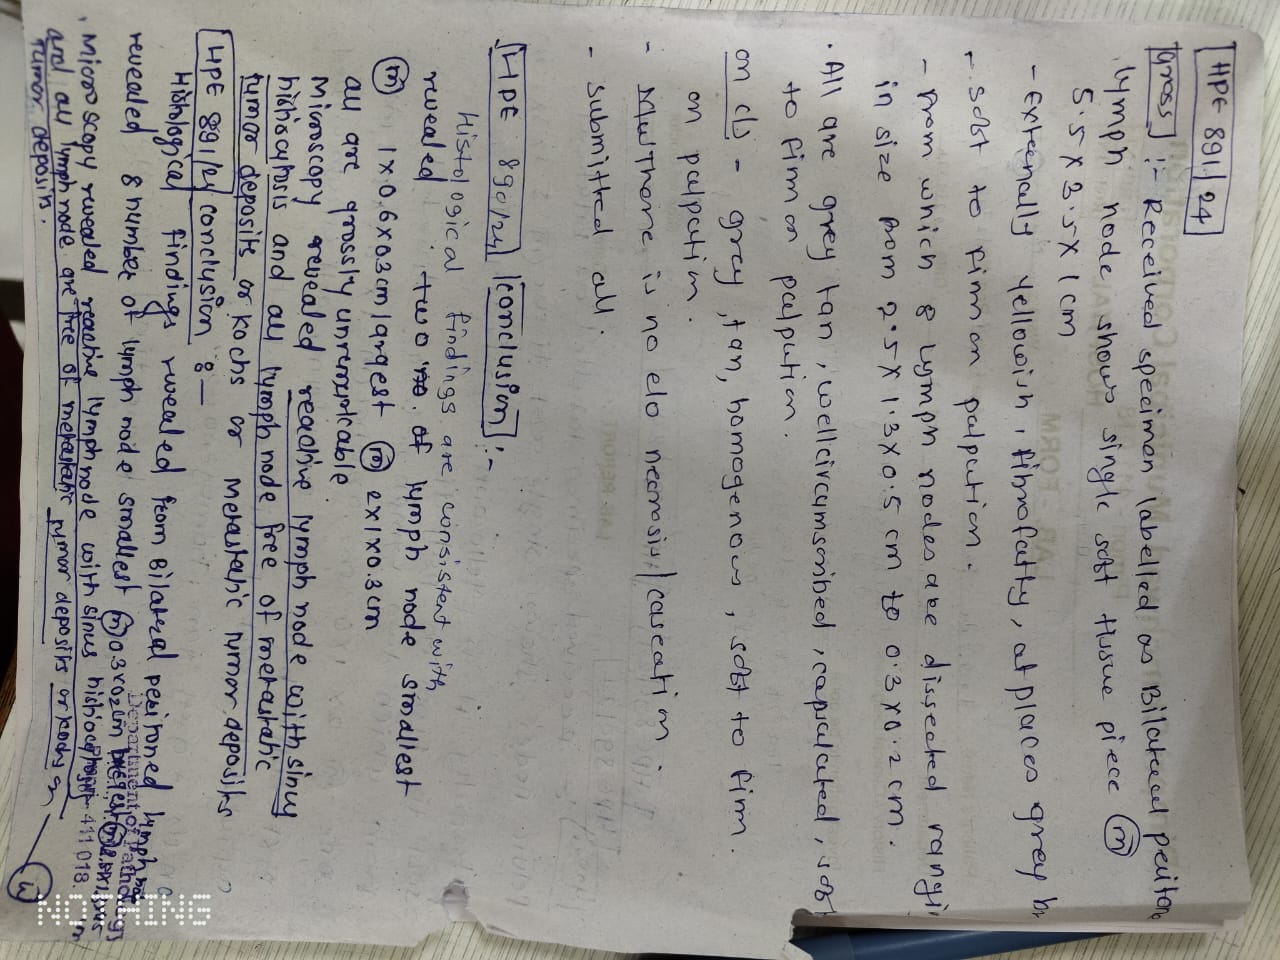 HPE 891/24
Gross :- Received specimen labelled as Bilateral peritone
lymph node shows single soft tissue piece (m)
5.5 x 3.5 x 1 cm
- Externally yellowish, fibrofatty, at places grey br
- soft to firm on palpation.
- From which 8 lymph nodes are dissected rangi
in size from 2.5 x 1.3 x 0.5 cm to 0.3 x 0.2 cm.
· All are grey tan, wellcircumscribed, capsulated, soft
to firm on palpation.
on c/s - grey, tan, homogenous, soft to firm
on palpation.
- Mutthere is no e/o necrosis/caseation.
- submitted all.
HPE 890/24 conclusion :-
Histological findings are consistent with
revealed two no. of lymph node, smallest
(m) 1 x 0.6 x 0.3 cm largest (m) 2 x 1 x 0.3 cm
all are grossly unremarkable.
Microscopy revealed reactive lymph node with sinus
histiocytosis and all lymph node free of metastatic
tumor deposits or kochs or metastatic tumor deposits
HPE 891/24 conclusion :-
Histological findings revealed from Bilateral peritoned lymph
revealed 8 number of lymph node smallest (m) 0.3 x 0.2 cm largest (m)
Microscopy revealed reactive lymph node with sinus
and all lymph node are free of metastatic tumor deposits or kochs or
tumor deposits.
Department of Pathology
411 018.
NOTHING